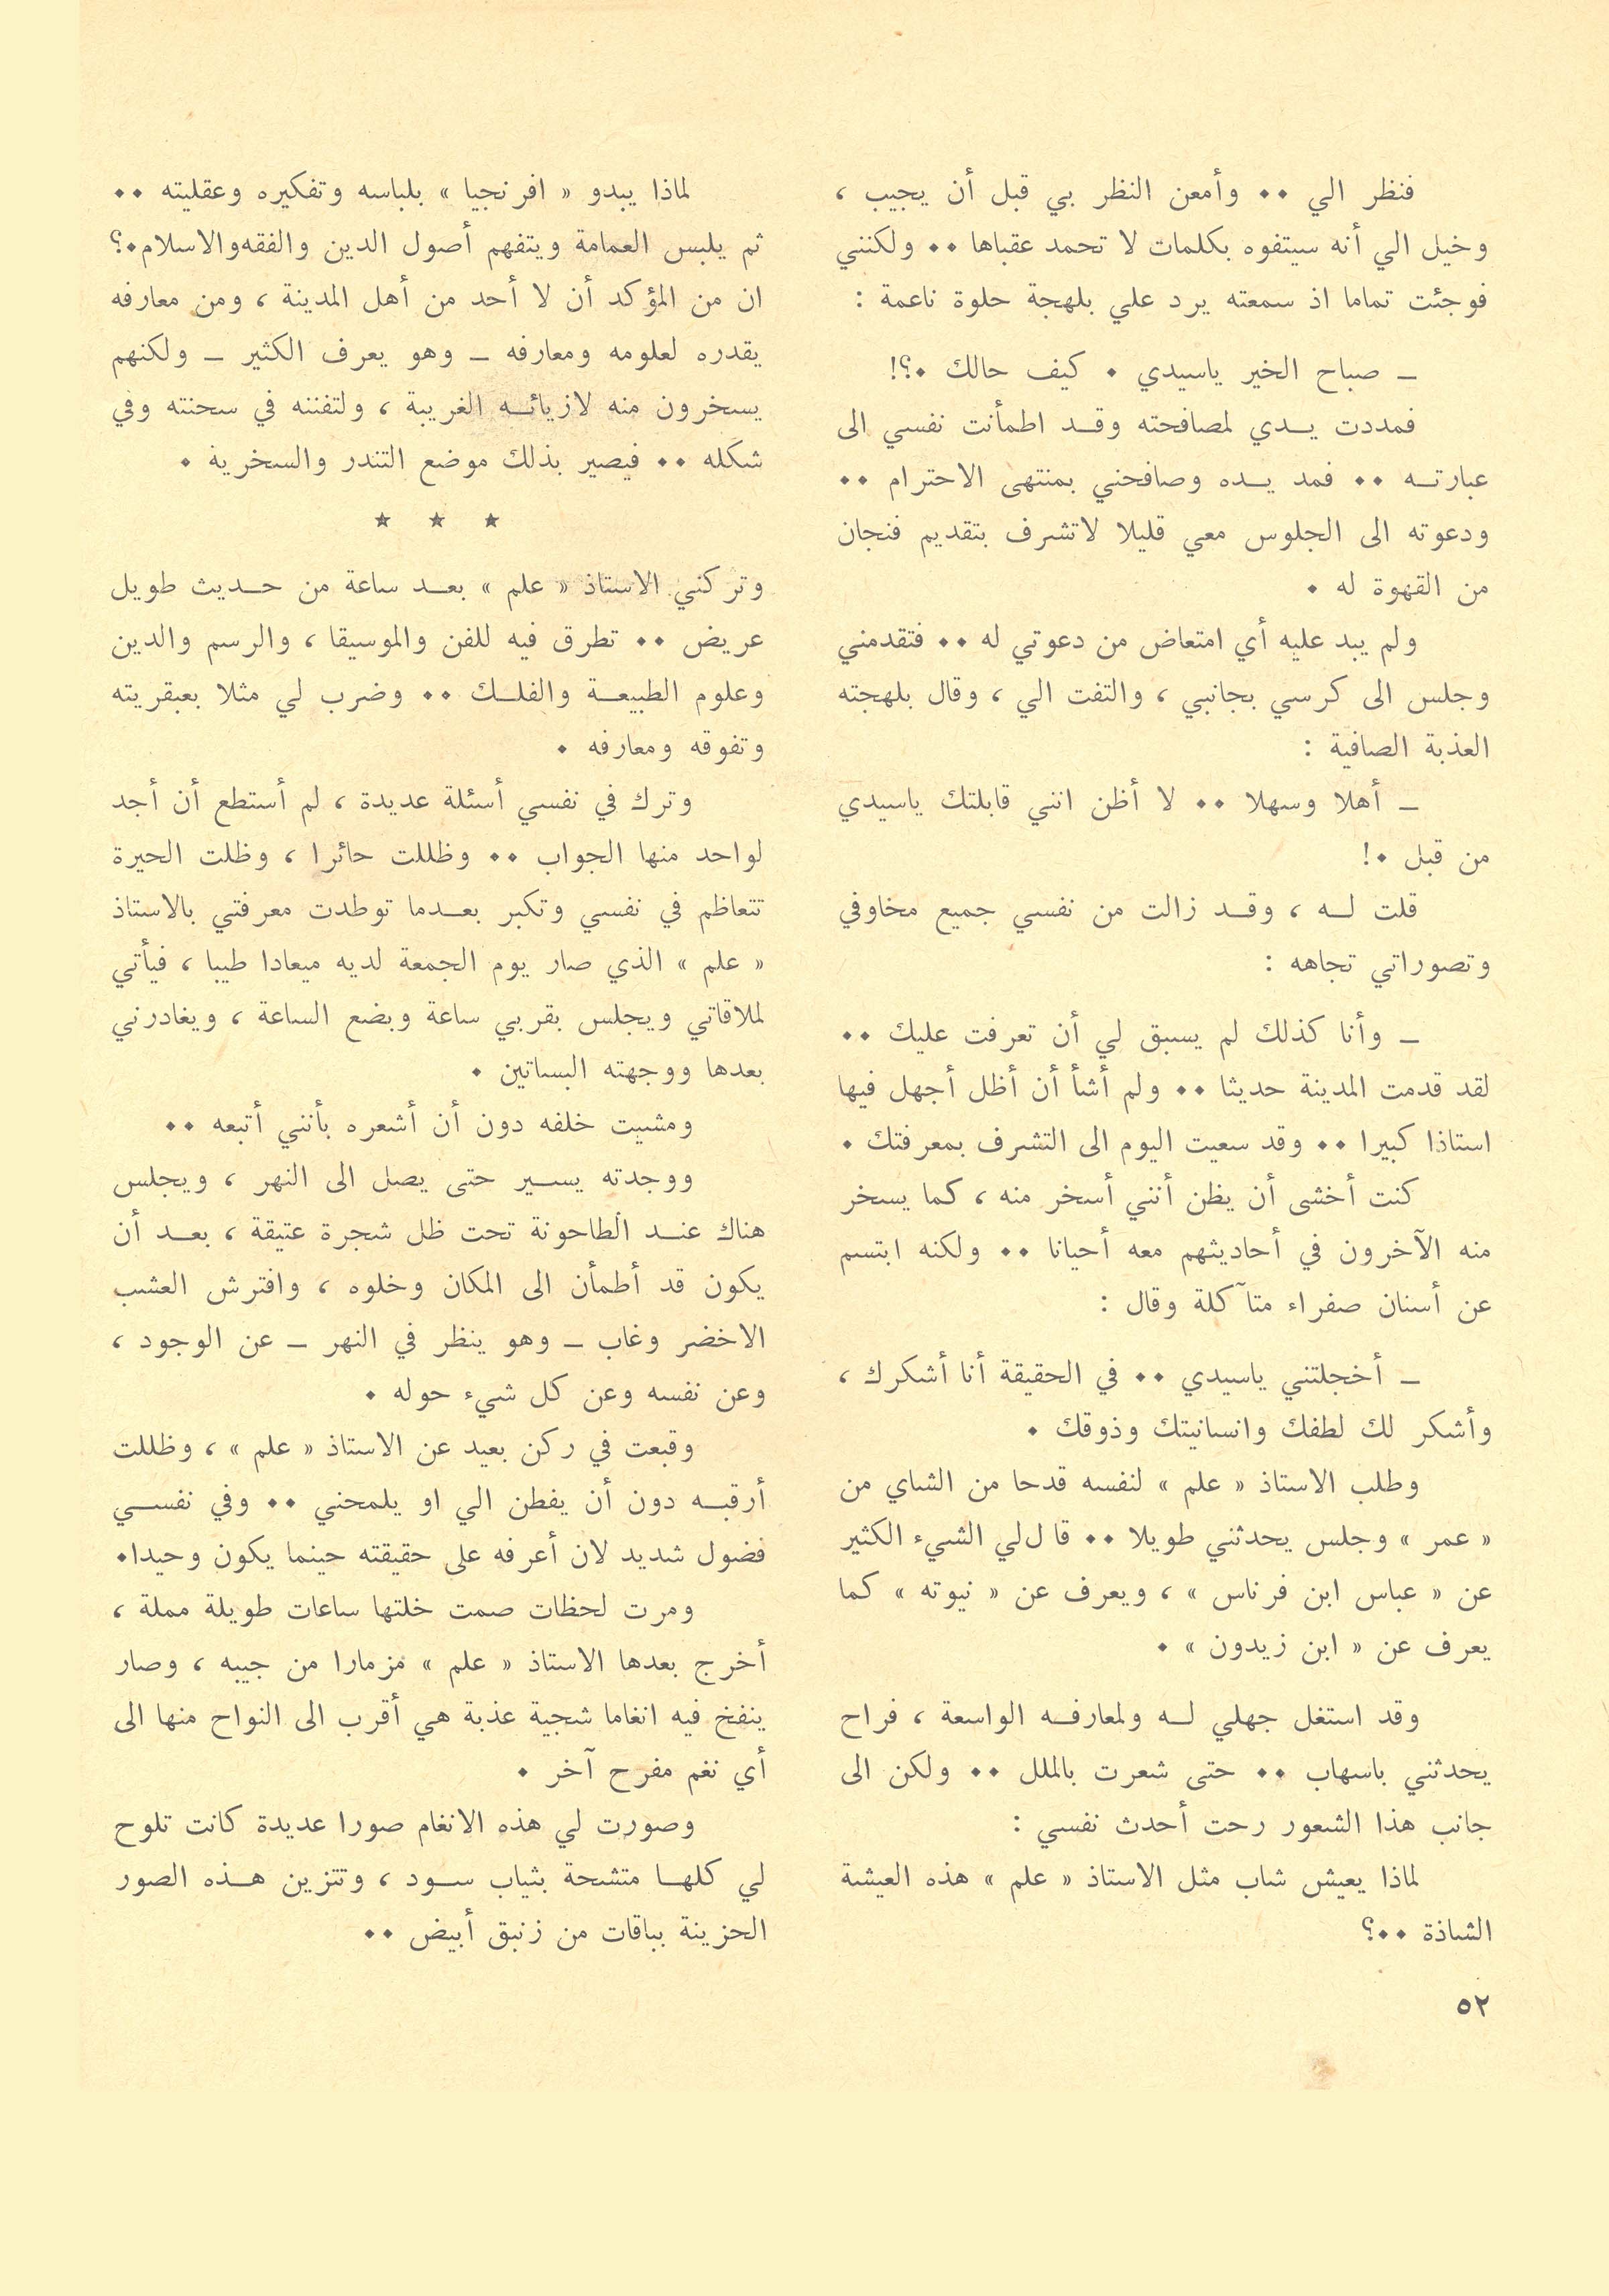 فنظر الي ٠٠ وأمعن النظر بي قبل أن يجيب ،
وخيل الي أنه سيتفوه بكلمات لا تحمد عقباها ٠٠ ولكنني
فوجئت تماما اذ سمعته يرد علي بلهجة حلوة ناعمة :
ـ صباح الخير ياسيدي ٠ كيف حالك ٠؟!
فمددت يــدي لمصافحته وقــد اطمأنت نفسي الى
عبارتــه ٠٠ فمد يــده وصافحني بمنتهى الاحترام ٠٠
ودعوته الى الجلوس معي قليلا لاتشرف بتقديم فنجان
من القهوة له ٠
ولم يبد عليه أي امتعاض من دعوتي له ٠٠ فتقدمني
وجلس الى كرسي بجانبي ، والتفت الي ، وقال بلهجته
العذبة الصافية :
ـ أهلا وسهلا ٠٠ لا أظن انني قابلتك ياسيدي
من قبل ٠!
قلت لــه ، وقــد زالت من نفسي جميع مخاوفي
وتصوراتي تجاهه :
ـ وأنا كذلك لم يسبق لي أن تعرفت عليك ٠٠
لقد قدمت المدينة حديثا ٠٠ ولم أشأ أن أظل أجهل فيها
استاذا كبيرا ٠٠ وقد سعيت اليوم الى التشرف بمعرفتك ٠
كنت أخشى أن يظن أنني أسخر منه ، كما يسخر
منه الآخرون في أحاديثهم معه أحيانا ٠٠ ولكنه ابتسم
عن أسنان صفراء متآكلة وقال :
ـ أخجلتني ياسيدي ٠٠ في الحقيقة أنا أشكرك ،
وأشكر لك لطفك وانسانيتك وذوقك ٠
وطلب الاستاذ « علم » لنفسه قدحا من الشاي من
« عمر » وجلس يحدثني طويلا ٠٠ قال لي الشيء الكثير
عن « عباس ابن فرناس » ، ويعرف عن « نيوته » كما
يعرف عن « ابن زيدون » ٠
وقد استغل جهلي لــه ولمعارفــه الواسعة ، فراح
يحدثني باسهاب ٠٠ حتى شعرت بالملل ٠٠ ولكن الى
جانب هذا الشعور رحت أحدث نفسي :
لماذا يعيش شاب مثل الاستاذ « علم » هذه العيشة
الشاذة ٠٠؟
لماذا يبدو « افرنجيا » بلباسه وتفكيره وعقليته ٠٠
ثم يلبس العمامة ويتفهم أصول الدين والفقه والاسلام٠؟
ان من المؤكد أن لا أحد من أهل المدينة ، ومن معارفه
يقدره لعلومه ومعارفه ـ وهو يعرف الكثير ـ ولكنهم
يسخرون منه لازيائــه الغريبة ، ولتفننه في سحنته وفي
شكله ٠٠ فيصير بذلك موضع التندر والسخرية ٠
★ ★ ★
وتركني الاستاذ « علم » بعــد ساعة من حــديث طويل
عريض ٠٠ تطرق فيه للفن والموسيقا ، والرسم والدين
وعلوم الطبيعــة والفلــك ٠٠ وضرب لي مثلا بعبقريته
وتفوقه ومعارفه ٠
وترك في نفسي أسئلة عديدة ، لم أستطع أن أجد
لواحد منها الجواب ٠٠ وظللت حائرا ، وظلت الحيرة
تتعاظم في نفسي وتكبر بعــدما توطدت معرفتي بالاستاذ
« علم » الذي صار يوم الجمعة لديه ميعادا طيبا ، فيأتي
لملاقاتي ويجلس بقربي ساعة وبضع الساعة ، ويغادرني
بعدها ووجهته البساتين ٠
ومشيت خلفه دون أن أشعره بأنني أتبعه ٠٠
ووجدته يســير حتى يصل الى النهر ، ويجلس
هناك عنــد الطاحونة تحت ظل شجرة عتيقة ، بعــد أن
يكون قد أطمأن الى المكان وخلوه ، وافترش العشب
الاخضر وغاب ـ وهو ينظر في النهر ـ عن الوجود ،
وعن نفسه وعن كل شيء حوله ٠
وقبعت في ركن بعيد عن الاستاذ « علم » ، وظللت
أرقبــه دون أن يفطن الي او يلمحني ٠٠ وفي نفســي
فضول شديد لان أعرفه على حقيقته حينما يكون وحيدا٠
ومرت لحظات صمت خلتها ساعات طويلة مملة ،
أخرج بعدها الاستاذ « علم » مزمارا من جيبه ، وصار
ينفخ فيه انغاما شجية عذبة هي أقرب الى النواح منها الى
أي نغم مفرح آخر ٠
وصورت لي هذه الانغام صورا عديدة كانت تلوح
لي كلهــا متشحة بثياب ســود ، وتتزين هــذه الصور
الحزينة بباقات من زنبق أبيض ٠٠
٥٢